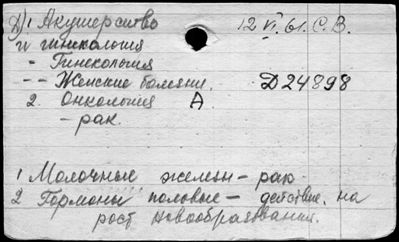 Д) 1 Акушерство 12 VI. 61. С. В.
и гинекология
- Гинекология
-- Женские болезни. Д24898
2. Онкология А
- рак.
1 Молочные желези - рак
2 Гормоны половые - действие на
рост новообразования.